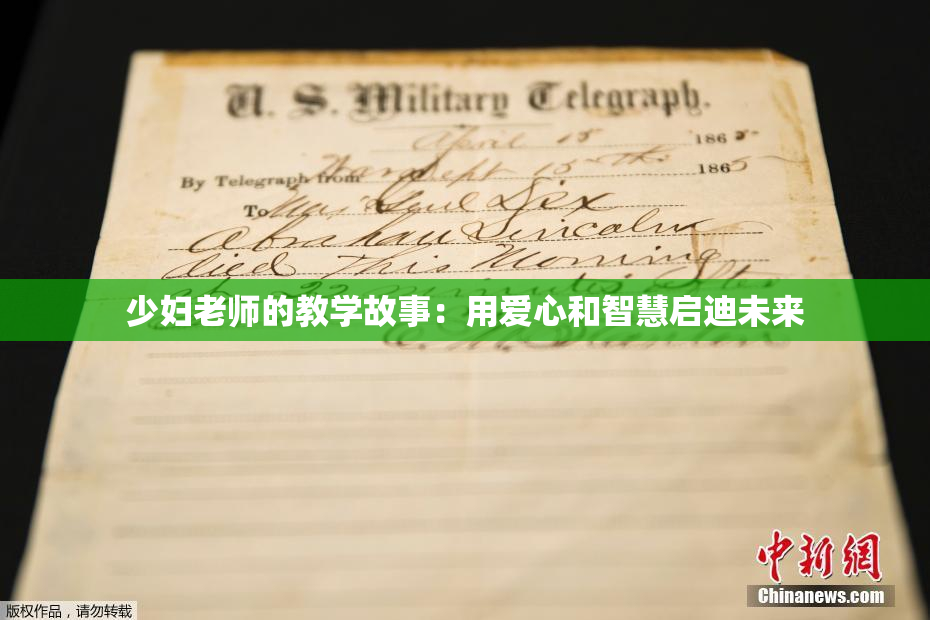 U. S. Military Telegraph.
April 15 1865
By Telegraph from War Dept 15th 1865
To Maj Genl Dix
Abraham Lincoln
died This Morning
at 22 minutes after
少妇老师的教学故事：用爱心和智慧启迪未来
中新网
Chinanews.com
版权作品，请勿转载